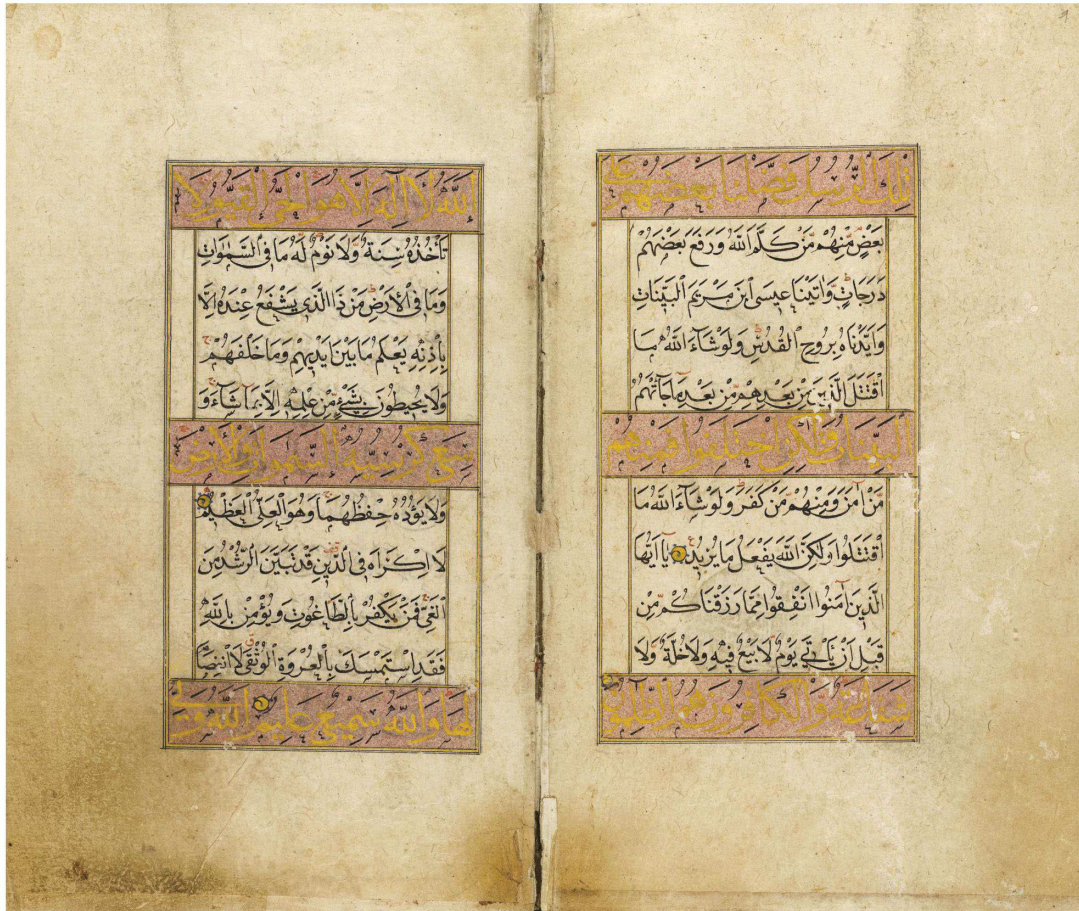 تِلْكَ الرُّسُلُ فَضَّلْنَا بَعْضَهُمْ عَلَى
بَعْضٍ مِّنْهُمْ مَّنْ كَلَّمَ اللهُ وَرَفَعَ بَعْضَهُمْ
دَرَجَاتٍ وَّاٰتَيْنَا عِيسَى ابْنَ مَرْيَمَ الْبَيِّنَاتِ
وَاَيَّدْنَاهُ بِرُوحِ الْقُدُسِ وَلَوْ شَآءَ اللهُ مَا
اقْتَتَلَ الَّذِينَ مِنْ بَعْدِهِمْ مِّنْ بَعْدِ مَا جَآءَتْهُمُ
الْبَيِّنَاتُ وَلٰكِنِ اخْتَلَفُوا فَمِنْهُمْ
مَّنْ اٰمَنَ وَمِنْهُمْ مَّنْ كَفَرَ وَلَوْ شَآءَ اللهُ مَا
اقْتَتَلُوا وَلٰكِنَّ اللهَ يَفْعَلُ مَا يُرِيدُ يَآ اَيُّهَا
الَّذِينَ اٰمَنُوا اَنْفِقُوا مِمَّا رَزَقْنَاكُمْ مِّنْ
قَبْلِ اَنْ يَأْتِيَ يَوْمٌ لَا بَيْعٌ فِيهِ وَلَا خُلَّةٌ وَّلَا
شَفَاعَةٌ وَالْكَافِرُونَ هُمُ الظَّالِمُونَ
اَللهُ لَا اِلٰهَ اِلَّا هُوَ الْحَيُّ الْقَيُّومُ لَا
تَأْخُذُهُ سِنَةٌ وَّلَا نَوْمٌ لَّهُ مَا فِي السَّمٰوَاتِ
وَمَا فِي الْاَرْضِ مَنْ ذَا الَّذِي يَشْفَعُ عِنْدَهُ اِلَّا
بِاِذْنِهِ يَعْلَمُ مَا بَيْنَ اَيْدِيهِمْ وَمَا خَلْفَهُمْ
وَلَا يُحِيطُونَ بِشَيْءٍ مِّنْ عِلْمِهِ اِلَّا بِمَا شَآءَ وَ
سِعَ كُرْسِيُّهُ السَّمٰوَاتِ وَالْاَرْضَ
وَلَا يَؤُدُهُ حِفْظُهُمَا وَهُوَ الْعَلِيُّ الْعَظِيمُ
لَا اِكْرَاهَ فِي الدِّينِ قَدْ تَبَيَّنَ الرُّشْدُ مِنَ
الْغَيِّ فَمَنْ يَكْفُرْ بِالطَّاغُوتِ وَيُؤْمِنْ بِاللهِ
فَقَدِ اسْتَمْسَكَ بِالْعُرْوَةِ الْوُثْقَى لَا انْفِصَا
مَ لَهَا وَاللهُ سَمِيعٌ عَلِيمٌ اَللهُ وَلِيُّ